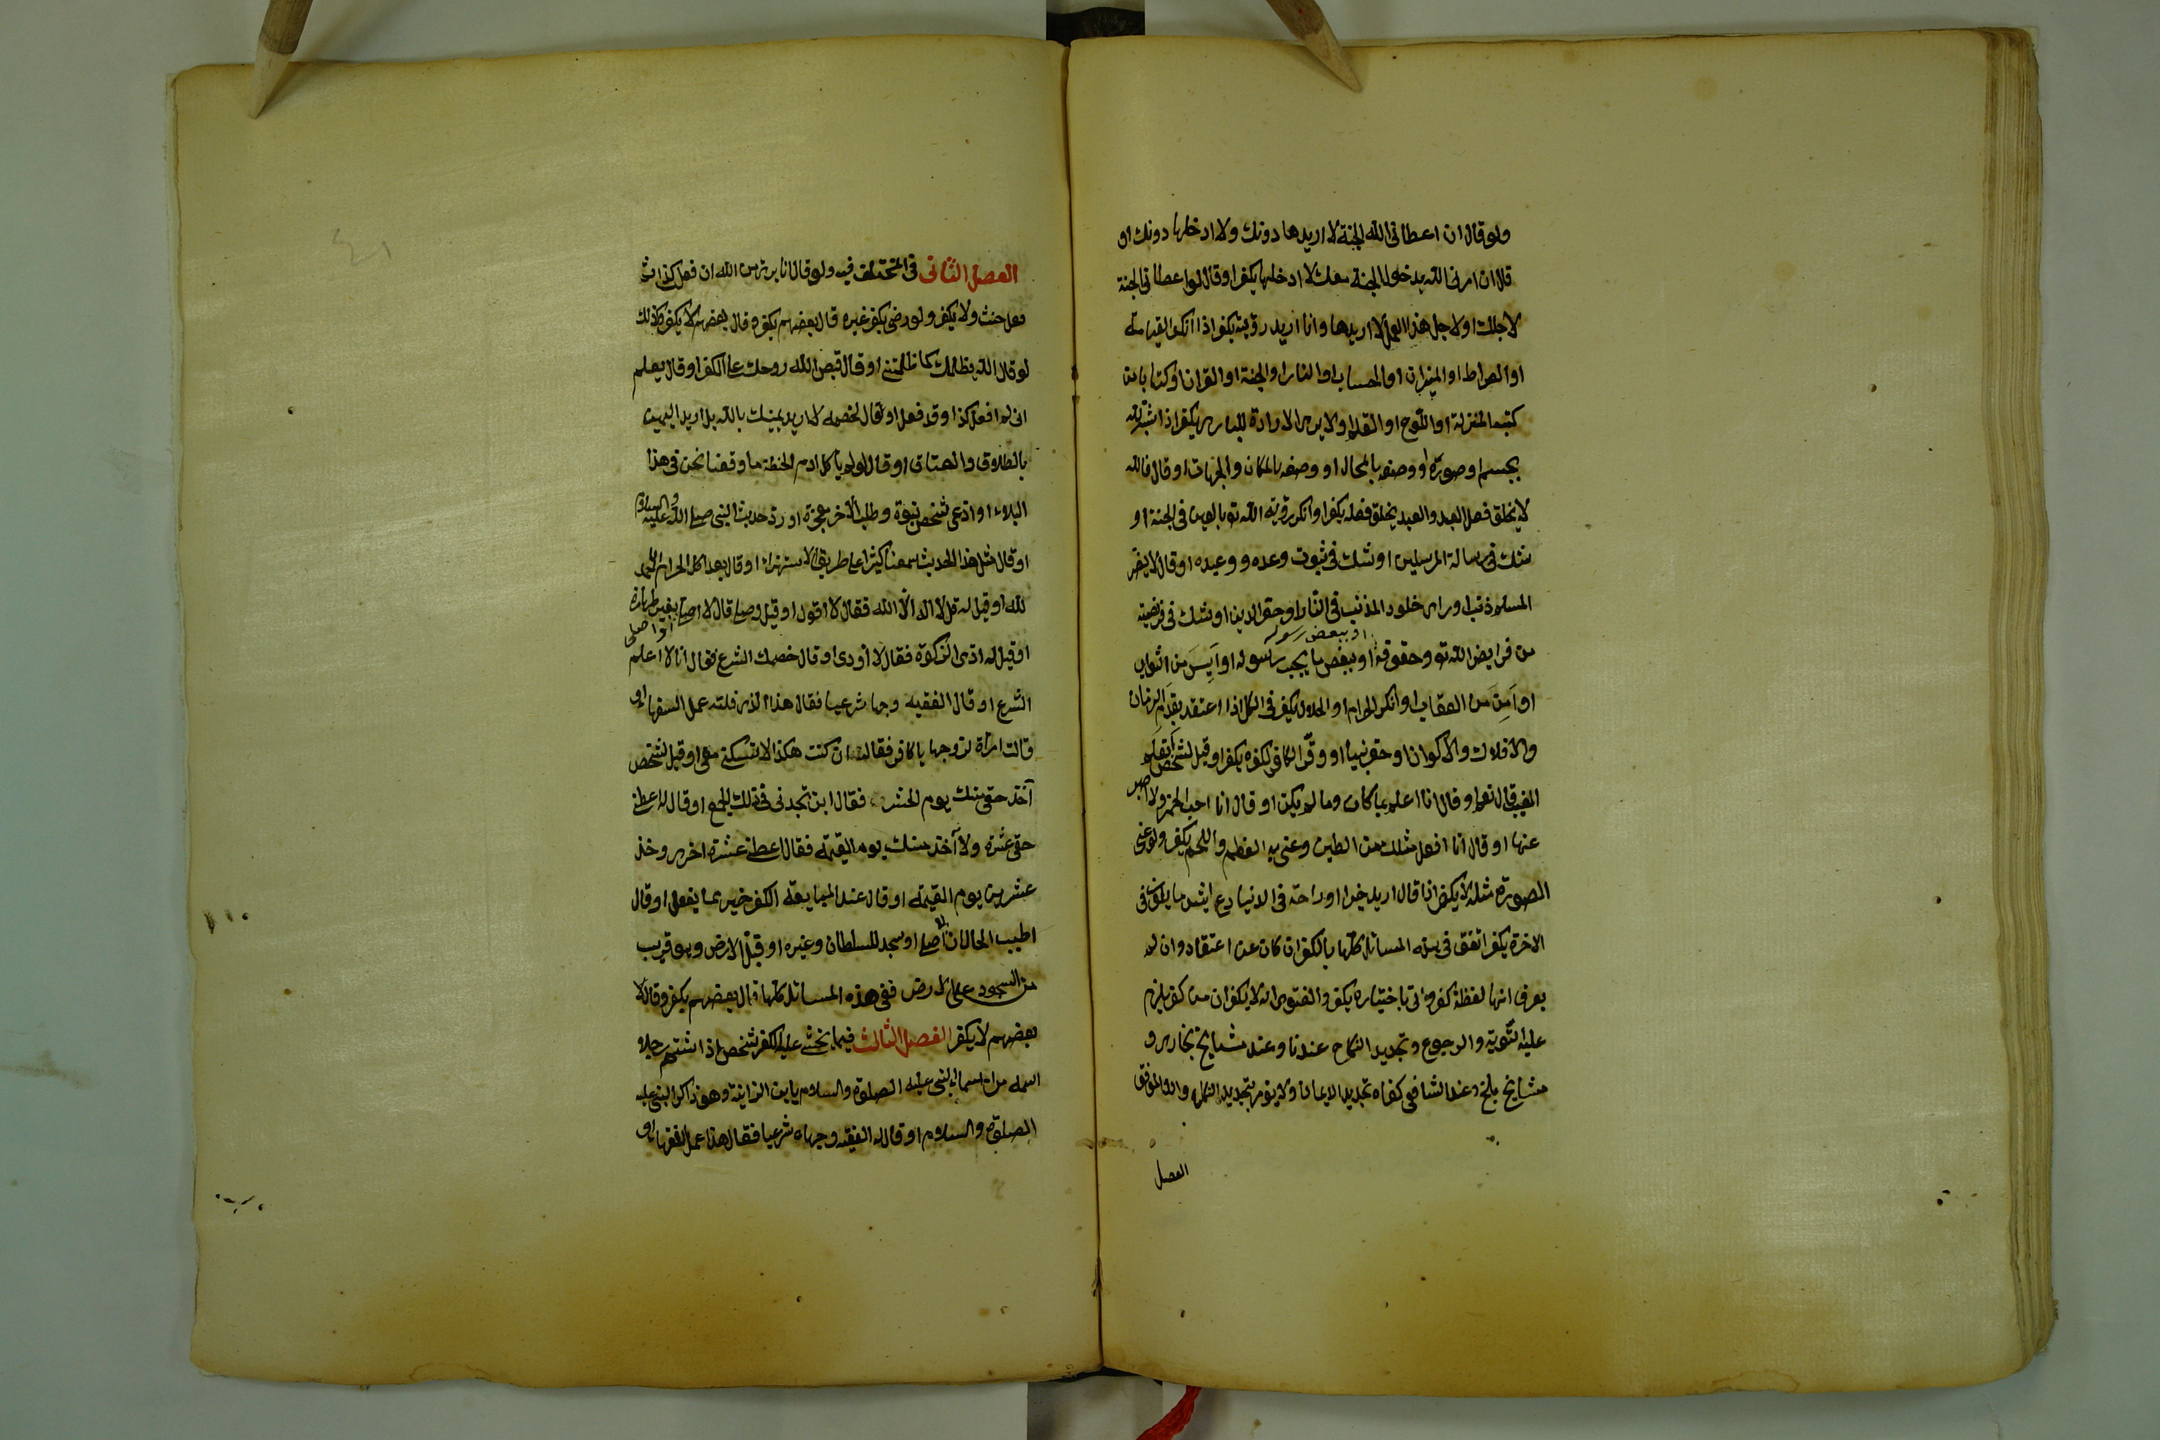 ولو قال ان اعطانى الله الجنة لا اريدها دونك ولا ادخلها دونك او
قال ان امرنى الله بدخول الجنة معك لا ادخلها يكفر او قال لو اعطانى الجنة
لاجلك او لاجل هذا العمل لا اريدها وانا اريد رؤيته يكفر اذا انكر القيامة
او الصراط او الميزان او الحساب او النار او الجنة او القران او كتابا من
كتبه المنزلة او اللوح او القلم او لا يرى الارادة للبارى يكفر اذا شبّه الله
بجسم او صورة او وصفه بالمحال او وصفه بالمكان والجهات او قال فالله
لا يخلق فعل العبد والعبد يخلق فعله يكفر او انكر رؤية الله تع بالعين فى الجنة او
شك فى رسالة المرسلين او شك فى ثبوت وعده ووعيده او قال لا يضر
المسلم ذنب او راى خلود المذنب فى النار او حقر الدين او شك فى فريضة
من فرايض الله تع وحقوقه او بغض ما يجب رسوله او اَيِسَ من الثواب
او ببعض رسوله
او اَمِنَ من العقاب او انكر الحرام او الحلال يكفر فى الكل اذا اعتقد بقِدَم الزمان
والافلاك والاكوان او حقر نبيا او وقّر الكافر لكفره يكفر او قيل لشخص اَتعلم
الغيب قال نعم او قال انا اعلم بما كان وما لم يكن او قال انا احب الخمر ولا اصبر
عنها او قال انا افعل مثلك من الطين وعنى به العظم واللحم يكفر ولو عنى
الصورة مثله لا يكفر اذا قال اريد خبزا او راحة فى الدنيا دع ايش ما يكون فى
الاخرة يكفر اتفق فى هذه المسائل كلها بالكفر ان كان عن اعتقاد وان لم
يعرف انها لفظة كفر واتى باختياره يكفر والفتوى انه لا يكفر ان من كفر يلزم
عليه التوبة والرجوع وتجديد النكاح عندنا وعند مشايخ بخارى و
مشايخ بلخ وعند الشافعى كفاه تجديد الايمان ولا يؤمر بتجديد النكاح والله الموفق
الفصل
الفصل الثانى فى المختلف فيه ولو قال انا برئ من الله ان فعل كذا ثم
فعل حنث ولا يكفر ولو رضى بكفر غيره قال بعضهم يكفر وقال بعضهم لا يكفر وكذلك
لو قال الله يظلمك كما ظلمتنى او قال قبض الله روحك على الكفر او قال يعلم
انى لم افعل كذا وقد فعل او قال لخصمه لا اريد يمينك بالله بل اريد اليمين
بالطلاق والعتاق او قال لو لم ياكل ادم الحنطة ما وقعنا نحن فى هذا
البلاء او ادعى شخص نبوة وطلب الآخر معجزة او رد حديث النبى صلى الله عليه والسلام
او قال مثل هذا الحديث سمعنا كثيرا على طريق الاستهزاء او قال بعد اكل الحرام الحمد
لله او قيل له قل لا اله الا الله فقال لا اقول او قيل له صل قال لا اصلى بغير طهارة
او اصلى
او قيل له ادّى الزكوة فقال لا أودى او قال خصمك الشرع فقال انا لا اعلم
الشرع او قال الفقيه وجها شرعيا فقال هذا الذى قلته عمل السفهاء او
قالت امرأة لزوجها يا كافر فقال ان كنت هكذا لا تسكنى معى او قيل لشخص
آخذ حقى منك يوم الحشر فقال اين تجدنى فى ذلك الجمع او قال له اعطنى
حقى عشرة ولا آخذ منك يوم القيمة فقال اعطنى عشرة اخرى وخذ
عشرين يوم القيمة او قال عند المبايعة الكفر خير مما يفعل او قال
اطيب الحال ان لا اصلى او سجد للسلطان وغيره او قبّل الارض وهو قريب
من السجود على الارض ففى هذه المسائل كلها قال بعضهم يكفر وقال
بعضهم لا يكفر الفصل الثالث فيما يخشى عليه الكفر شخص اذا شتم رجلا
اسمه من اسماء النبى عليه الصلوة والسلام يا ابن الزانية وهو ذاكر النبى عليه
الصلوة والسلام او قال له الفقيه وجها شرعيا فقال هذا عمل الفقهاء او